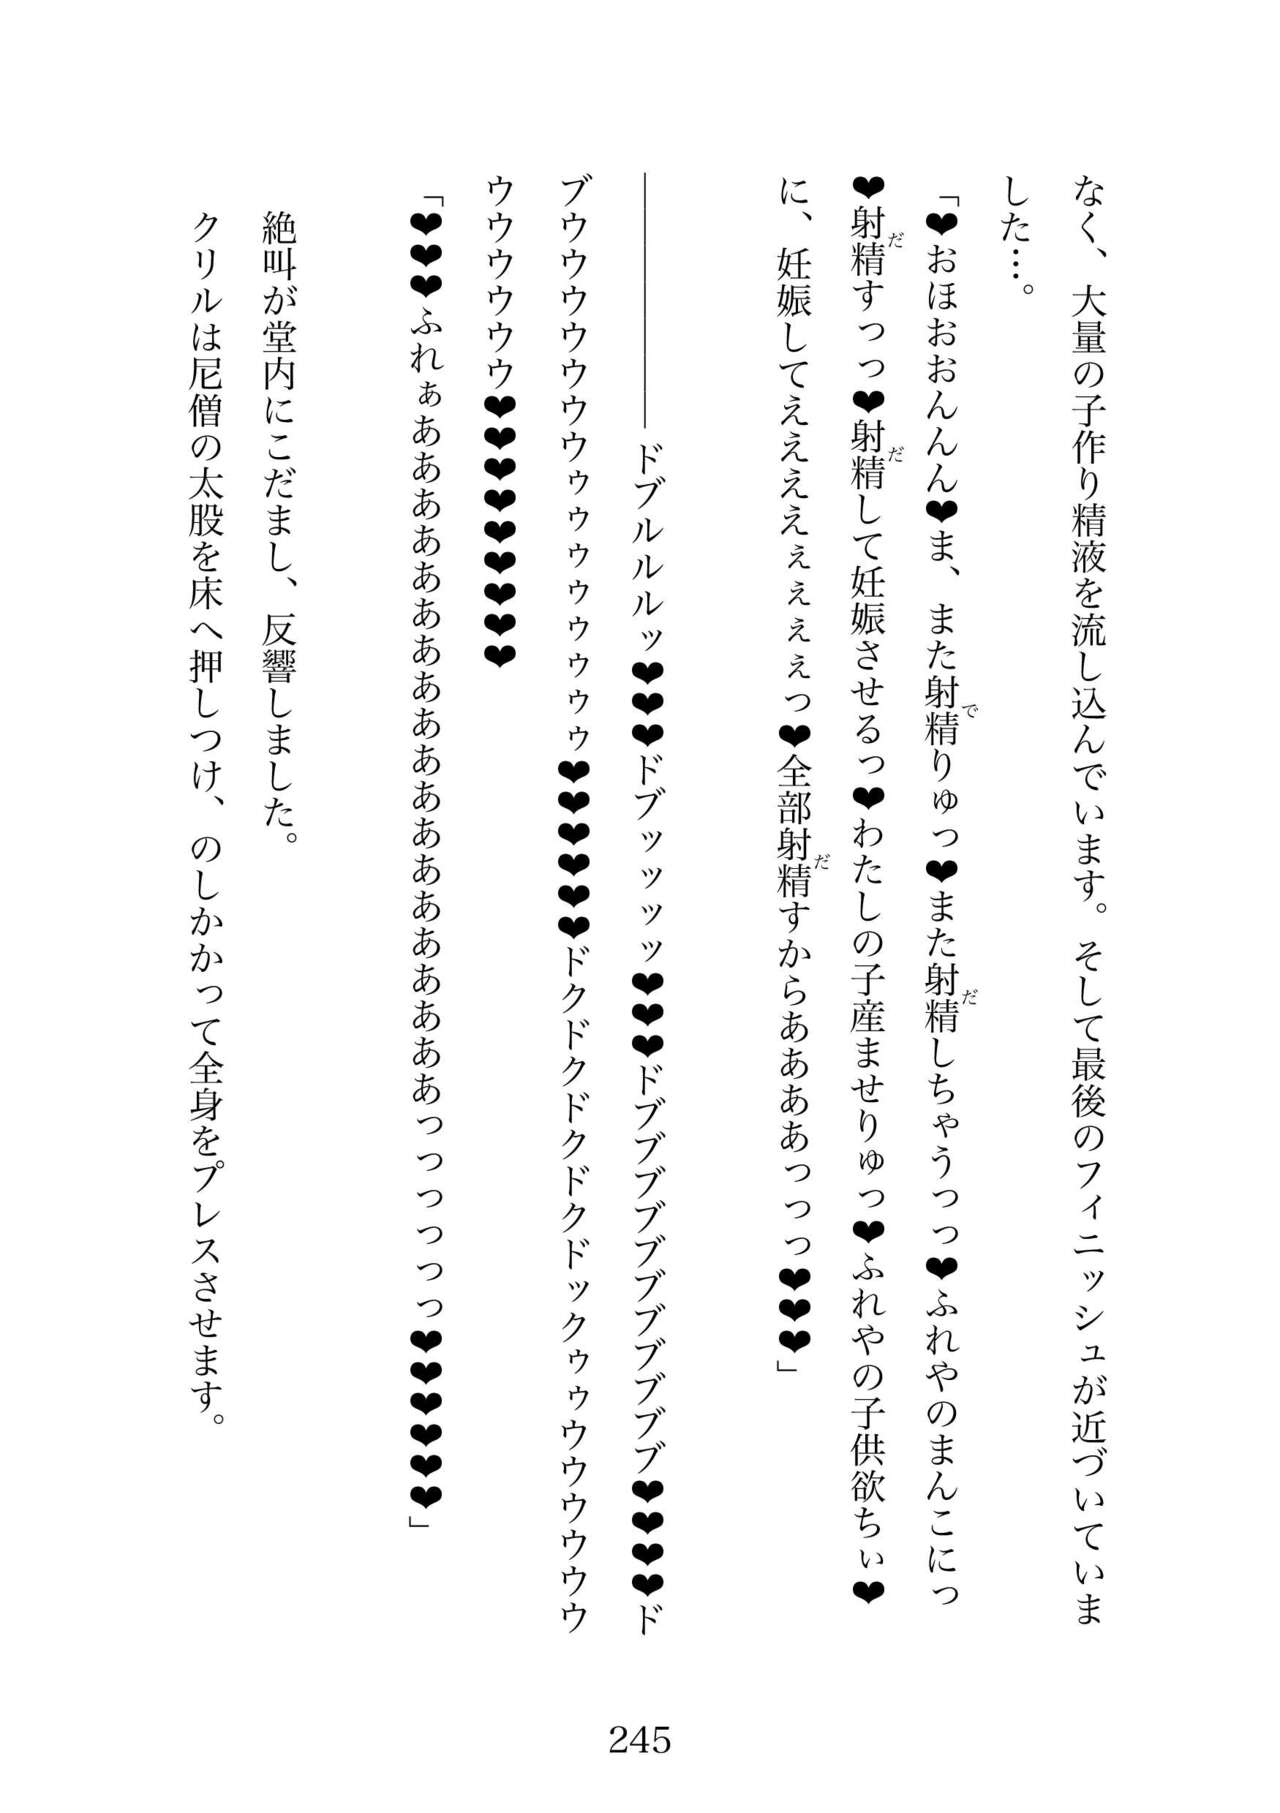 なく、大量の子作り精液を流し込んでいます。そして最後のフィニッシュが近づいていま
した…。
「❤おほおおんんん❤ま、また射精りゅっ❤また射精しちゃうっっ❤ふれやのまんこにっ
❤射精すっっ❤射精して妊娠させるっ❤わたしの子産ませりゅっ❤ふれやの子供欲ちぃ❤
に、妊娠してええええぇぇぇぇっ❤全部射精すからああああっっっ❤❤❤」
―――――――ドブルルルッ❤❤❤ドブッッッッ❤❤❤ドブブブブブブブブブブブ❤❤❤❤ド
ブウウウウウウウゥゥゥゥゥゥゥゥ❤❤❤❤❤❤ドクドクドクドクドックゥゥウウウウウウ
ウウウウウウ❤❤❤❤❤❤❤❤❤
「❤❤❤ふれぁああああああああああああああああああああっっっっっっ❤❤❤❤❤❤」
絶叫が堂内にこだまし、反響しました。
クリルは尼僧の太股を床へ押しつけ、のしかかって全身をプレスさせます。
245